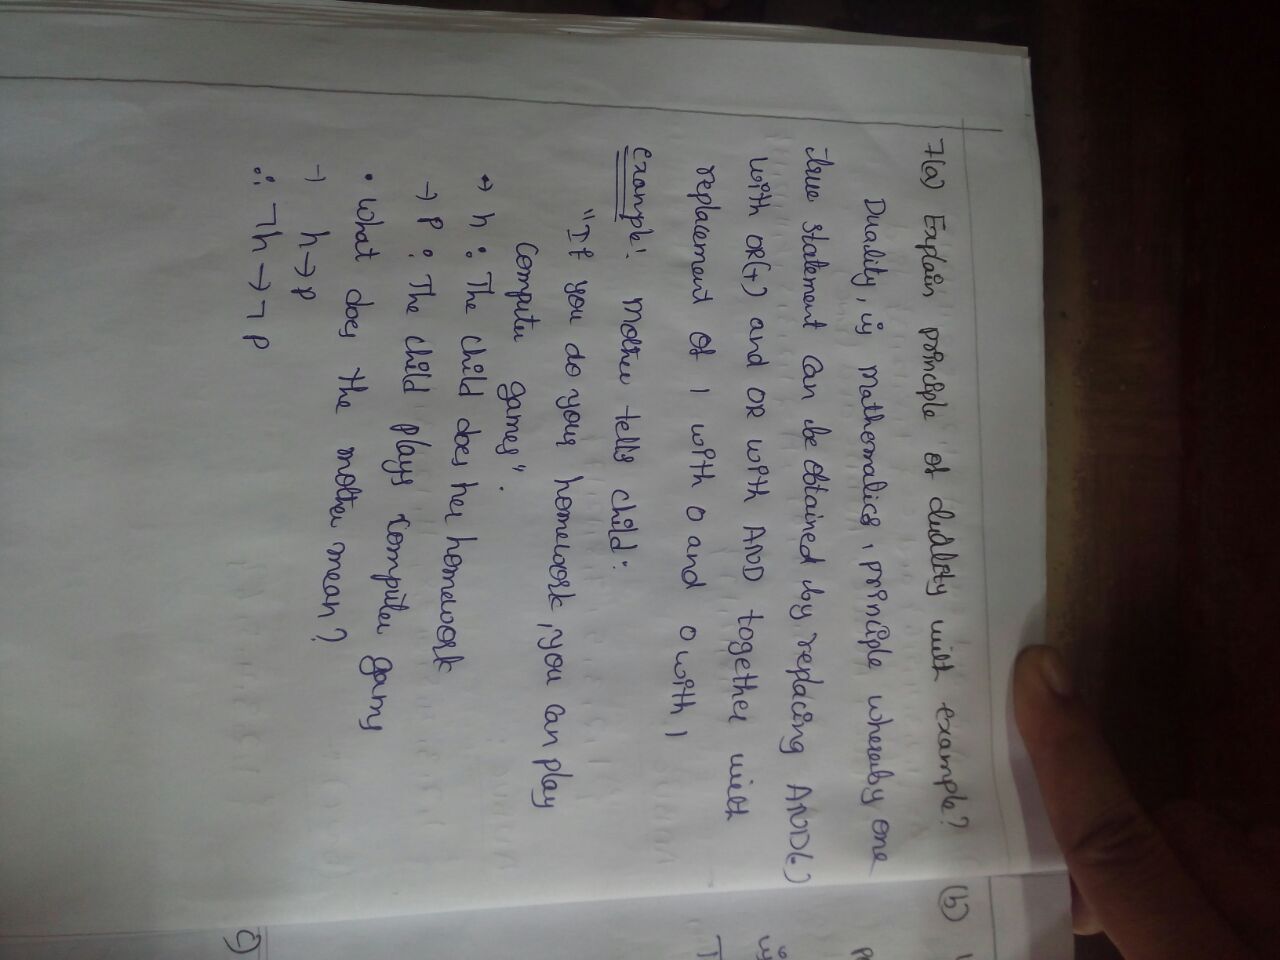 7(a) Explain principle of duality with example?
Duality, is mathematics, principle whereby one
true statement can be obtained by replacing AND(.)
with OR(+) and OR with AND together with
replacement of 1 with 0 and 0 with 1
example: Mother tells child:
"If you do your homework, you can play
computer games".
↔ h : The child does her homework
→ P : The child plays computer games
• What does the mother mean?
→ h → p
∴ ¬h → ¬p
(b)
c)